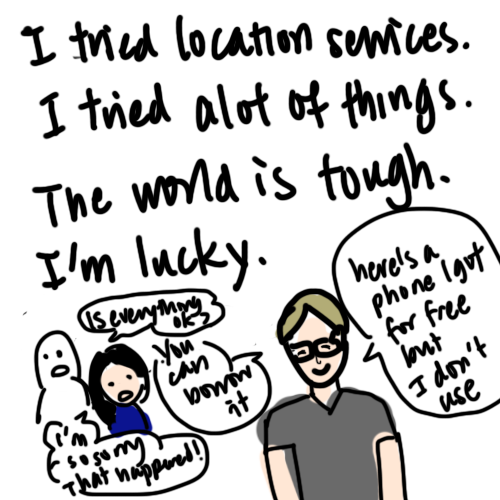 I tried location services.
I tried alot of things.
The world is tough.
I'm lucky.
Is everything
ok?
You
can
borrow
it
I'm
so sorry
That happened!
here's a
phone I got
for free
but
I don't
use